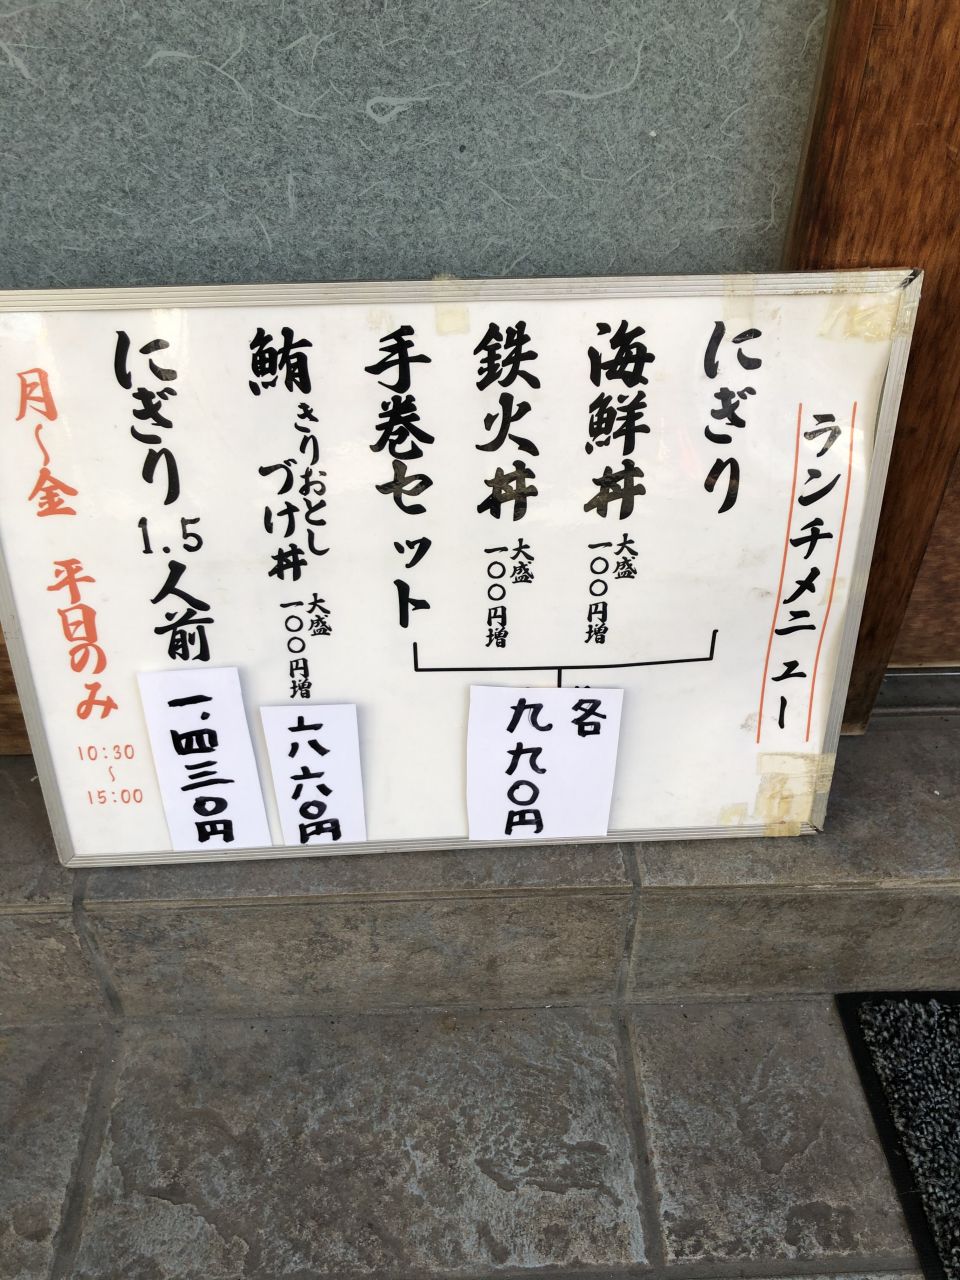 ランチメニュー
にぎり
海鮮丼 大盛 一〇〇円増
鉄火丼 大盛 一〇〇円増
手巻セット
各
九九〇円
鮪きりおとしづけ丼 大盛 一〇〇円増
六六〇円
にぎり1.5人前
一.四三〇円
月〜金 平日のみ
10:30
〜
15:00